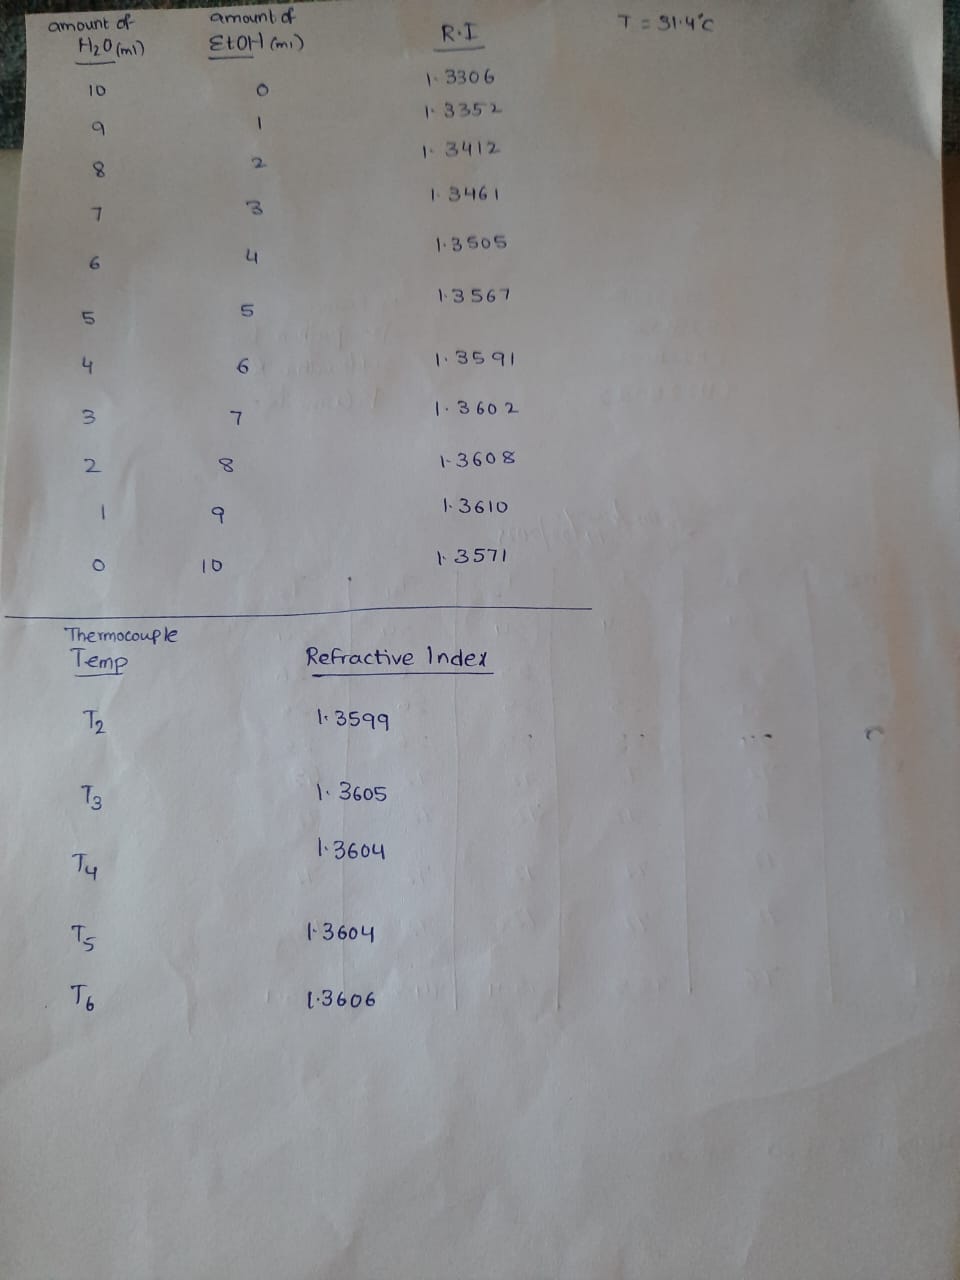 amount of H2O (ml) amount of EtOH (ml) R.I T = 31.4°C
10 0 1.3306
9 1 1.3352
8 2 1.3412
7 3 1.3461
6 4 1.3505
5 5 1.3567
4 6 1.3591
3 7 1.3602
2 8 1.3608
1 9 1.3610
0 10 1.3571
Thermocouple
Temp Refractive Index
T2 1.3599
T3 1.3605
T4 1.3604
T5 1.3604
T6 1.3606